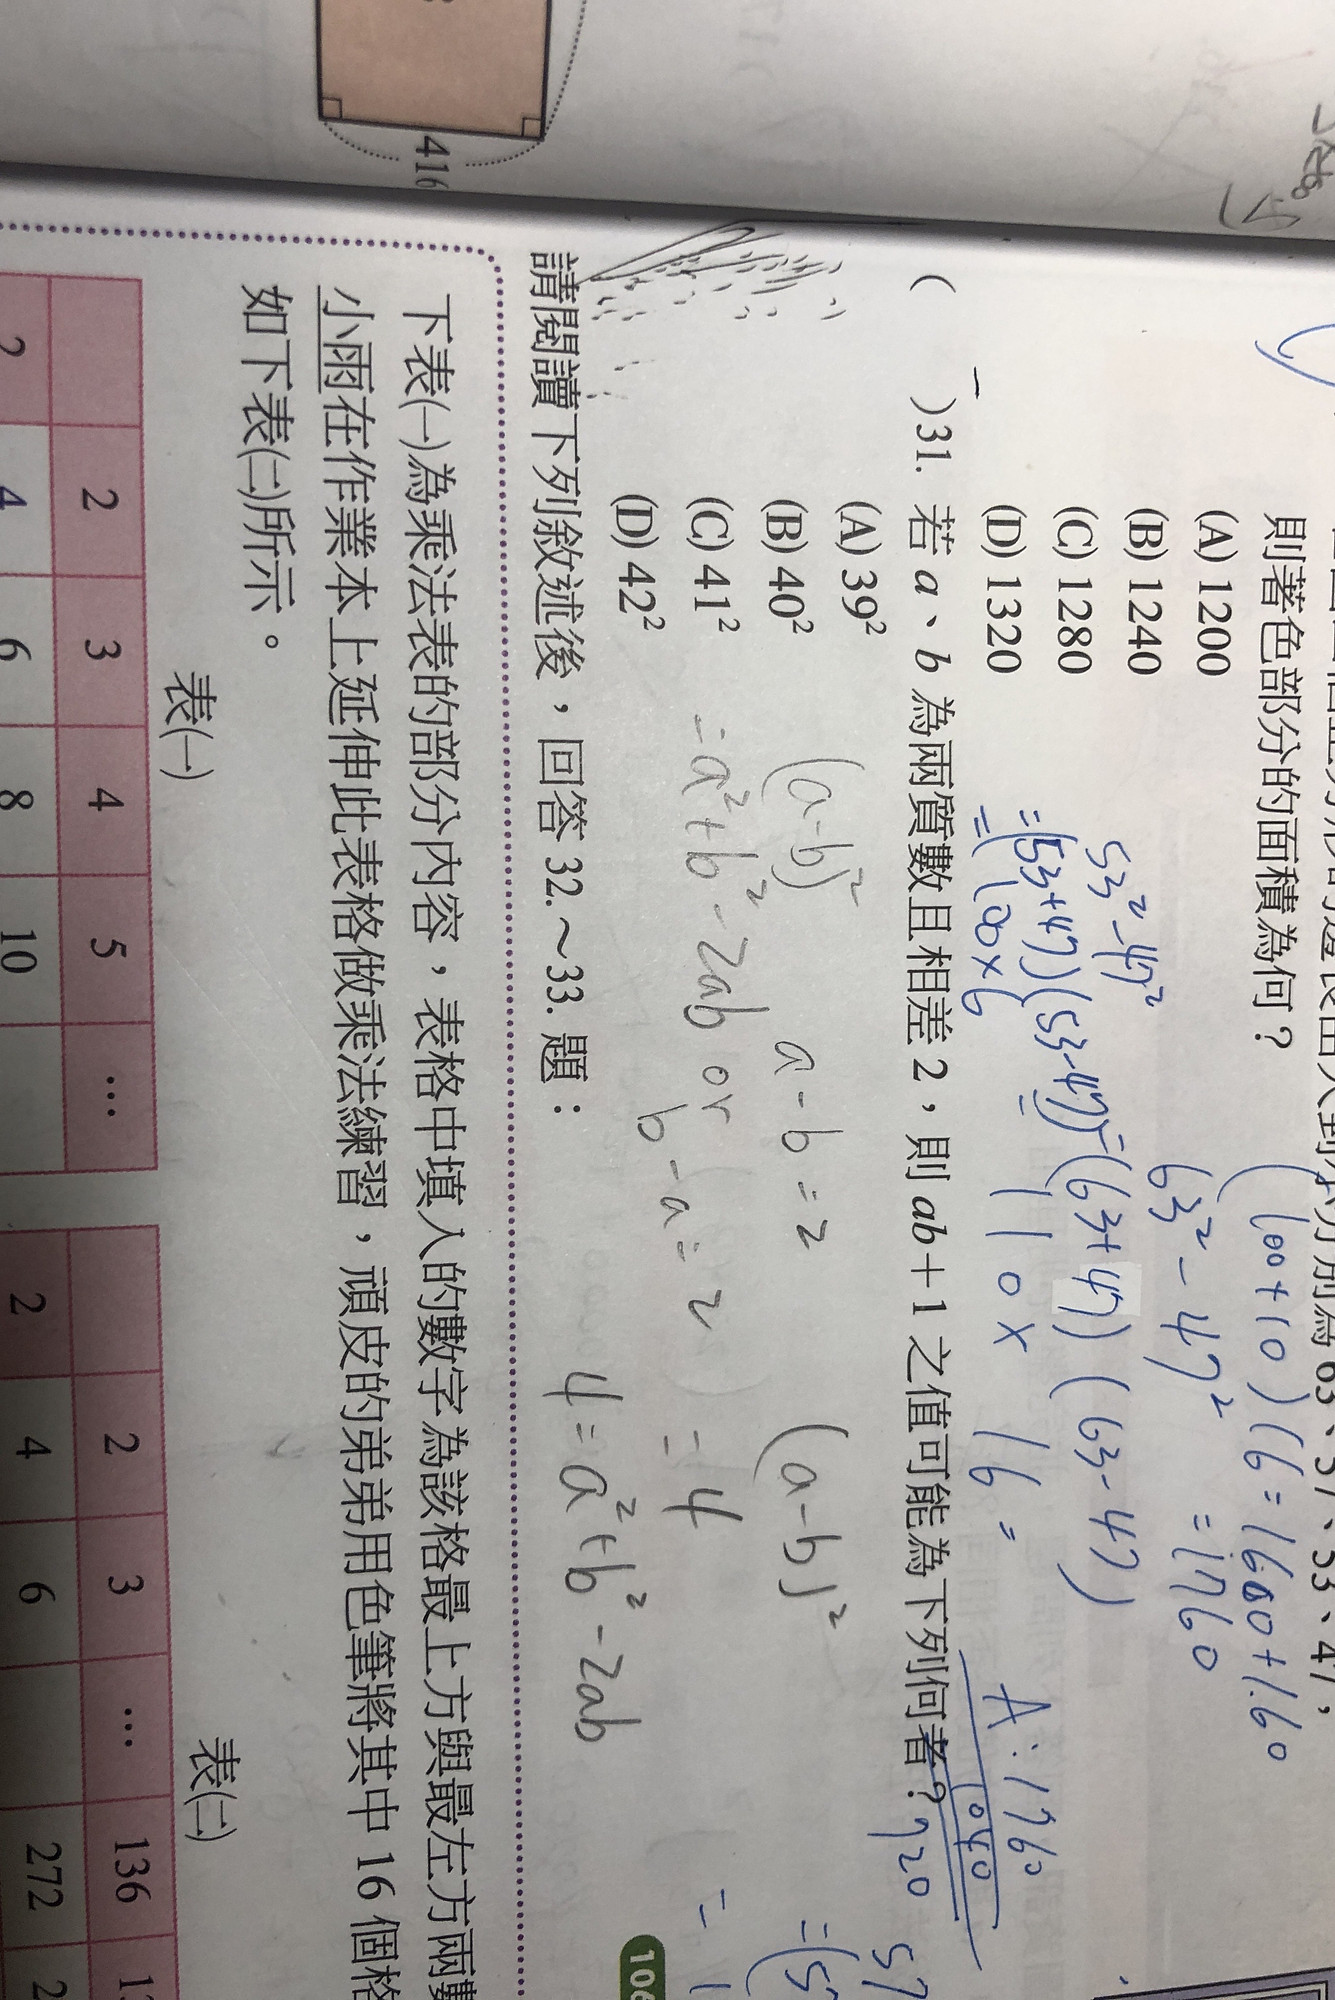 416
則著色部分的面積為何？
(A) 1200
(B) 1240
(C) 1280
(D) 1320
(100+10)(6=1600+160
63²-47²
=1760
53²-47²
=(53+47)(53-47)-(63+47)(63-47)
=100×6
110×16=
A:1760
1040
720
( )31. 若 a、b 為兩質數且相差 2，則 ab＋1 之值可能為下列何者？
(A) 39²
(B) 40²
(C) 41²
(D) 42²
(a-b)²
a-b=2
(a-b)²
=a²+b²-2ab or
b-a=2
=4
4=a²+b²-2ab
106
請閱讀下列敘述後，回答 32.～33. 題：
下表㈠為乘法表的部分內容，表格中填入的數字為該格最上方與最左方兩數
小雨在作業本上延伸此表格做乘法練習，頑皮的弟弟用色筆將其中 16 個格
如下表㈡所示。
表㈠
2 3 4 5 …
2 4 6 8 10
表㈡
2 3 … 136
2 4 6 272